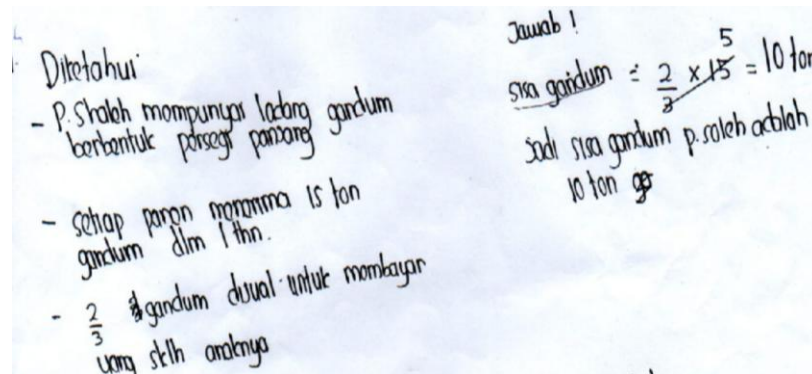 Diketahui
- P. Shaleh mempunyai ladang gandum
berbentuk persegi panjang
- setiap panen menerima 15 ton
gandum dlm 1 thn.
- 2/3 gandum dijual untuk membayar
uang sklh anaknya
Jawab !
sisa gandum = 2/3 x 15 5 = 10 ton
Jadi sisa gandum p. saleh adalah
10 ton